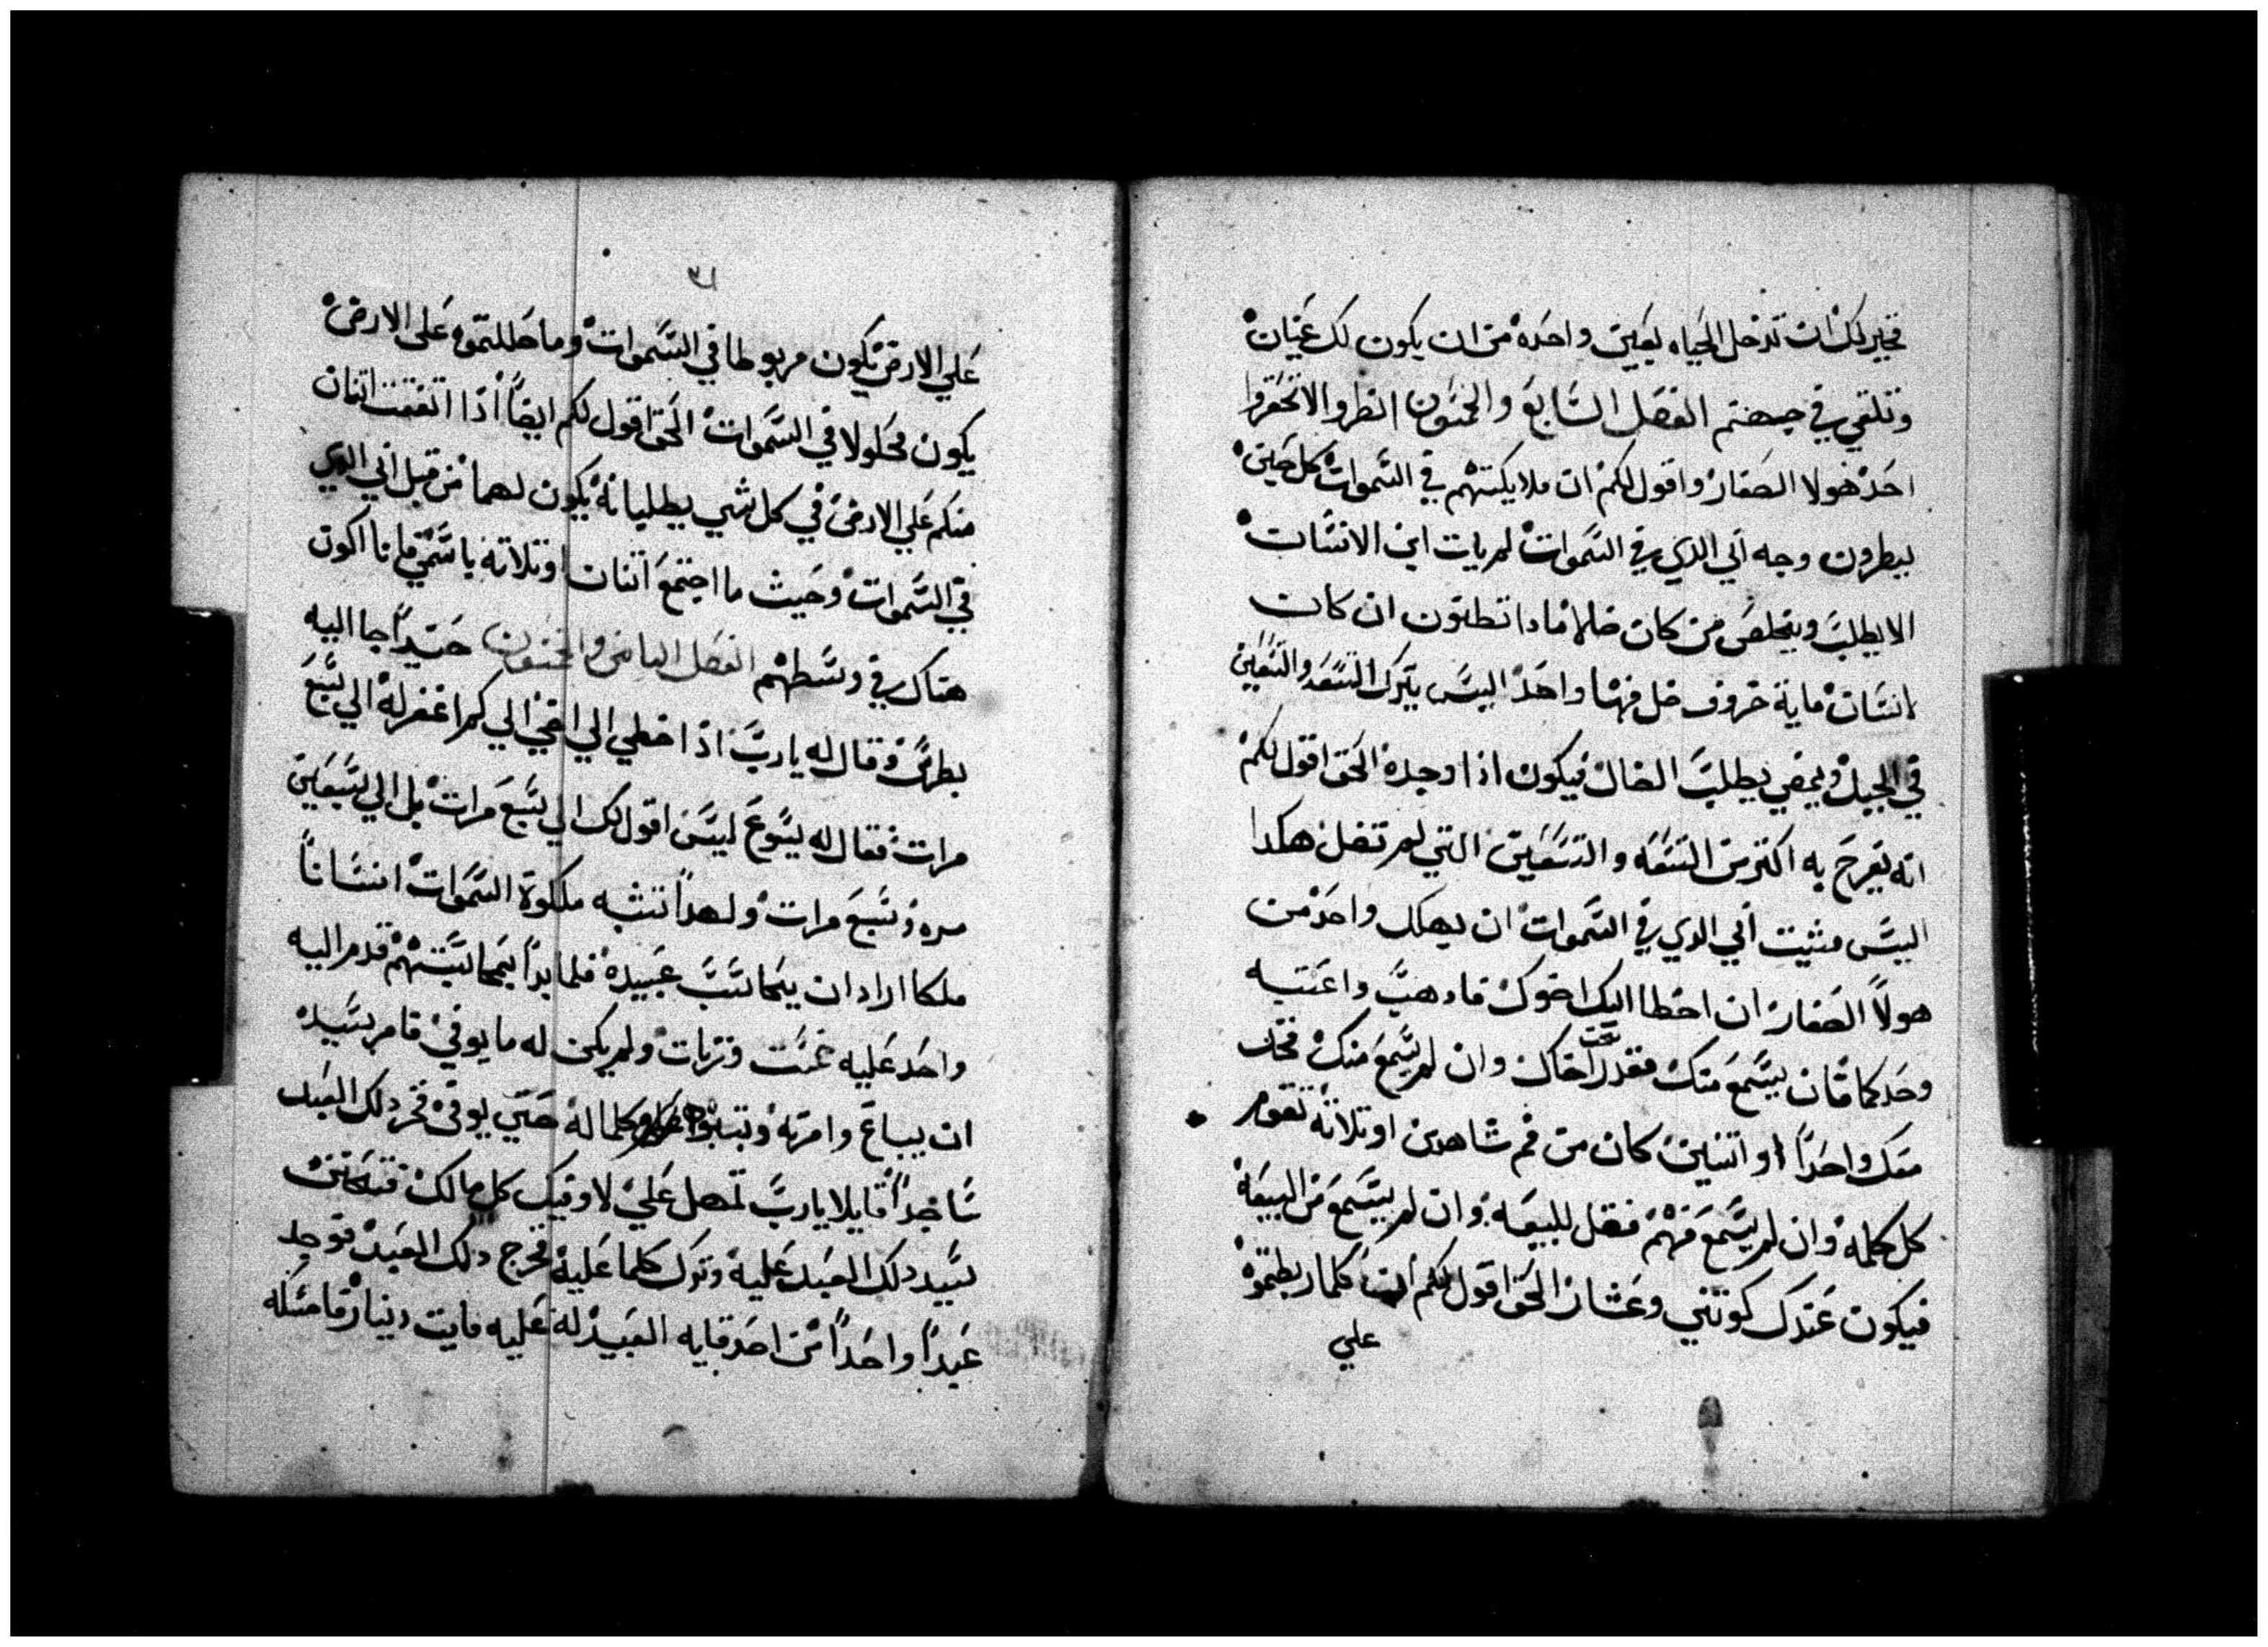 فخير لك ان تدخل الحياه بعين واحده من ان يكون لك عينان
وتلقي في جهنم الفصل السابع والخمسون انظروا لا تحقروا
احد هولا الصغار واقول لكم ان ملايكتهم في السموات كل حين
ينظرون وجه ابي الدي في السموات لم يات ابن الانسان
الا يطلب ويخلص من كان ضالا مادا تظنون ان كان
لانسان ماية خروف ضل منها واحد اليس يترك التسعه والتسعين
في الجبل ويمضي يطلب الضال فيكون اذا وجده الحق اقول لكم
انه يفرح به اكتر من التسعه والتسعين التي لم تضل هكدا
اليس مشيت ابي الدي في السموات ان يهلك واحد من
هولاً الصغار ان اخطا اليك اخوك فادهب واعتبه
وحدكما فان يسمع منك فقد ربحت اخاك وان لم يسمع منك فخد
معك واحداً او اتنين كان من فم شاهدين او تلاتة تقوم
كل كلمه وان لم يسمع منهم فقل للبيعه وان لم يسمع من البيعة
فيكون عندك كوتني وعشار الحق اقول لكم ان كلما ربطتموه
علي
علي الارض يكون مربوطا في السموات وما حللتموه علي الارض
يكون محلولا في السموات الحق اقول لكم ايضاً اذا اتفقت اتنان
منكم علي الارض في كل شي يطلبانه يكون لهما من قبل ابي الدي
في السموات وحيث ما اجتمع اتنان او تلاته باسمي فانا اكون
هناك في وسطهم الفصل التامن والخمسون حينيداً جا اليه
بطرس وقال له يارب اذا اخطي الي اخي الي كم اغفر له الي سبع
مرات فقال له يسوع ليس اقول لك الي سبع مرات بل الي سبعين
مره وسبع مرات ولهداً تشبه ملكوة السموات انساناً
ملكا اراد ان يحاسب عبيده فلما بداً يحاسبهم قدم اليه
واحد عليه وزنات ولم يكن له ما يوفي فامر سيده
ان يباع وامرته وبنوه وكلما له حتي يوفي فخر دلك العبد
ساجداً قايلا يارب تمهل علي لاوفيك كل مالك فتحنن
سيد دلك العبد عليه وترك كلما عليه فخرج دلك العبد فوجد
عبداً واحداً من احد العبيد له عليه مايت دينار فامسكه